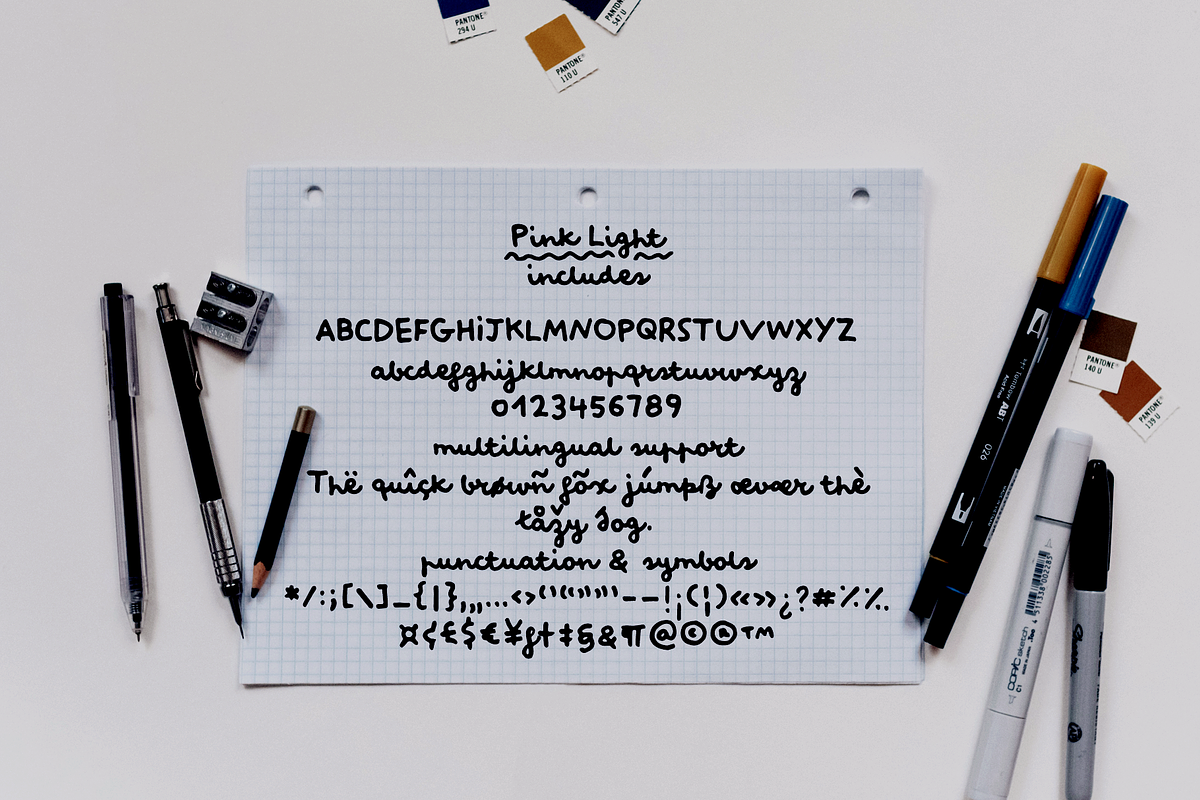 PANTONE®
294 U
PANTONE®
547 U
PANTONE®
110 U
Pink Light
includes
ABCDEFGHiJKLMNOPQRSTUVWXYZ
abcdefghijklmnopqrstuvwxyz
0123456789
multilingual support
Thë quîçk brøwñ fõx júmpß œvær thè
łåžy ðog.
punctuation & symbols
*/:;[\]_{|}‚„,…‹›‘’“”'"–—!¡(¦)«»¿?#٪‰
¤¢£$€¥ƒ†‡§&¶@©®™
PANTONE®
140 U
PANTONE®
139 U
Tombow ABT
026
COPIC sketch
C1
4 511338 002285
Sharpie